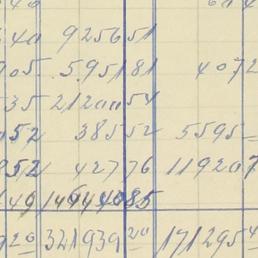 40 9256 51
905 595181 4072
35 212005 4
052 38552 5595
952 42776 119207
149 1494 4085
920 341939 20 171295 4